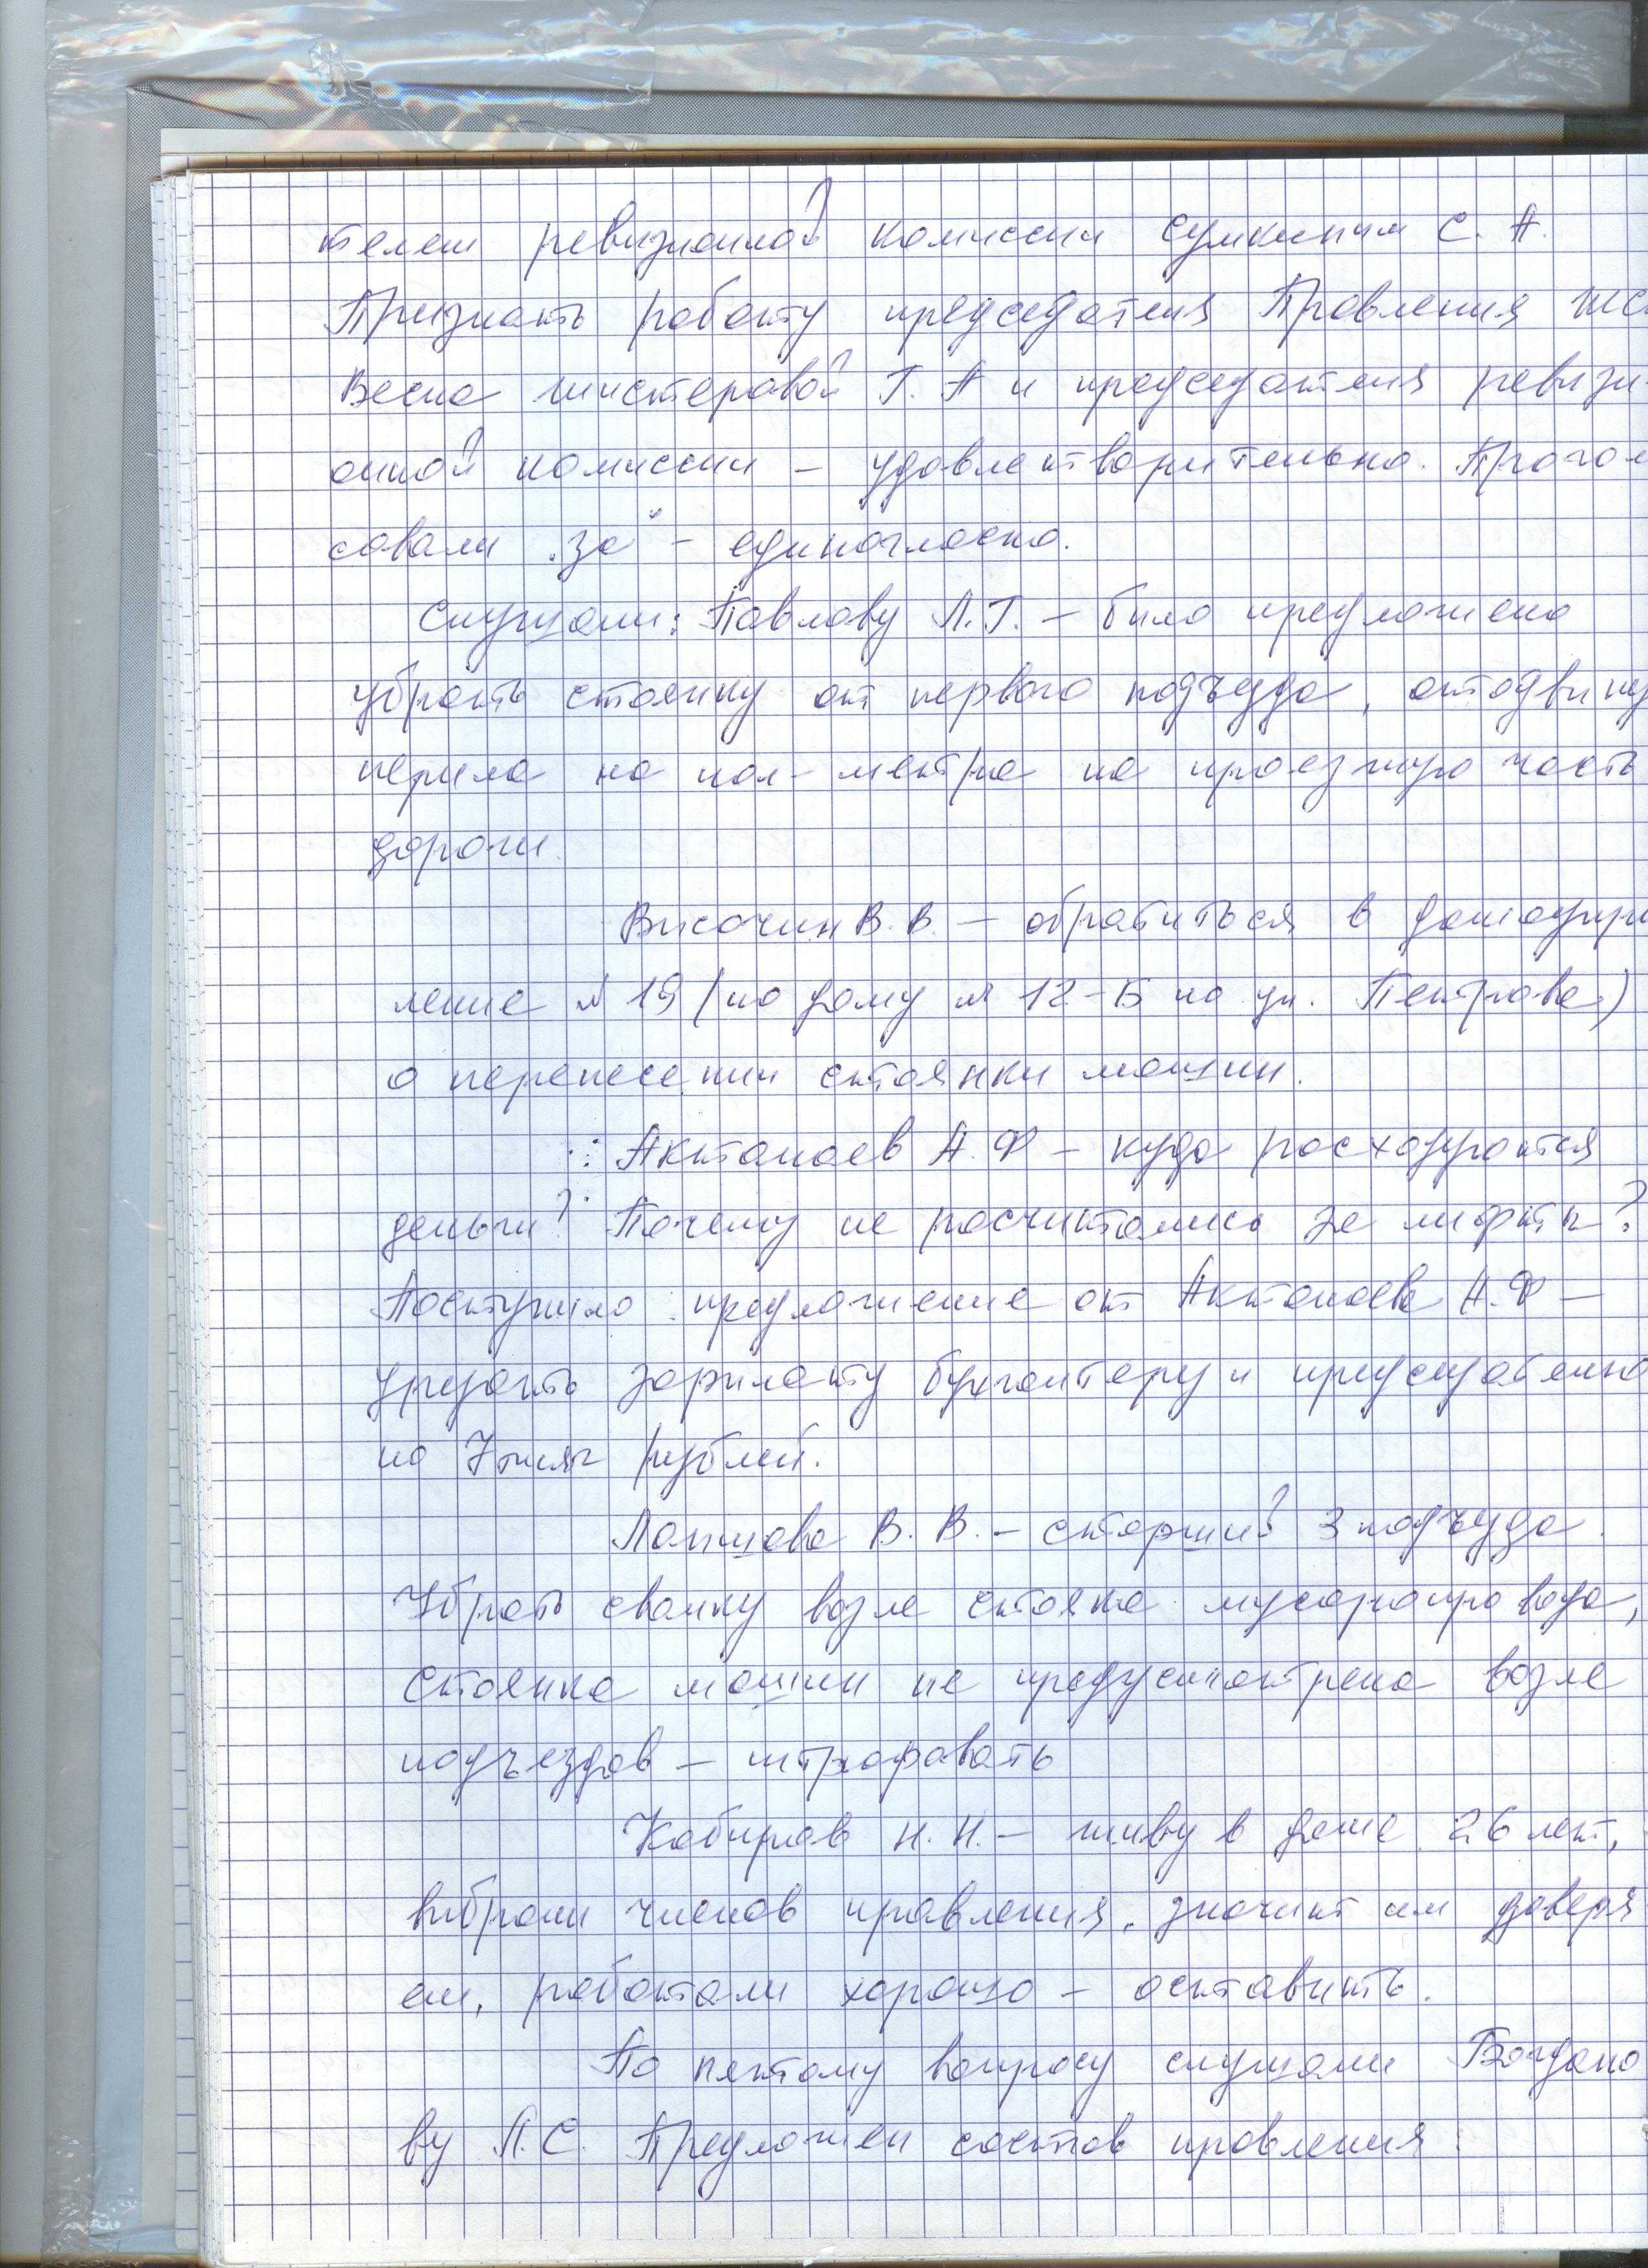 телем ревизионной комиссии Сумкиным С. А.
Признать работу председателя Правления ЖС
Весна Шистеровой Г. А и председателя ревизи
онной комиссии – удовлетворительно. Прогол
совали „за" – единогласно.
Слушали: Павлову Л.Г. – было предложено
убрать стоянку от первого подъезда, отодвину
перила на пол-метра на проезжую часть
дороги
Височин В. В. – обратиться в домоупр
ление № 19 (по дому № 12-Б по ул. Петрова)
о перенесении стоянки машин.
Актанаев А. Ф – куда расходуются
деньги? Почему не расчитались за лифты?
Поступило предложение от Актанаева А. Ф –
урезать зарплату бухгалтеру и председателю
по 7 тысяч рублей.
Лапшова В. В. – старший 3 подъезда.
Убрать свалку возле стояка мусоропровода,
стоянка машин не предусмотрена возле
подъездов – штрафовать
Кабиров Н. Н. – живу в доме 26 лет,
выбрали членов правления, значит им доверя
ем, работали хорошо – оставить.
По пятому вопросу слушали Богдано
ву Л. С. Предложен состав правления: